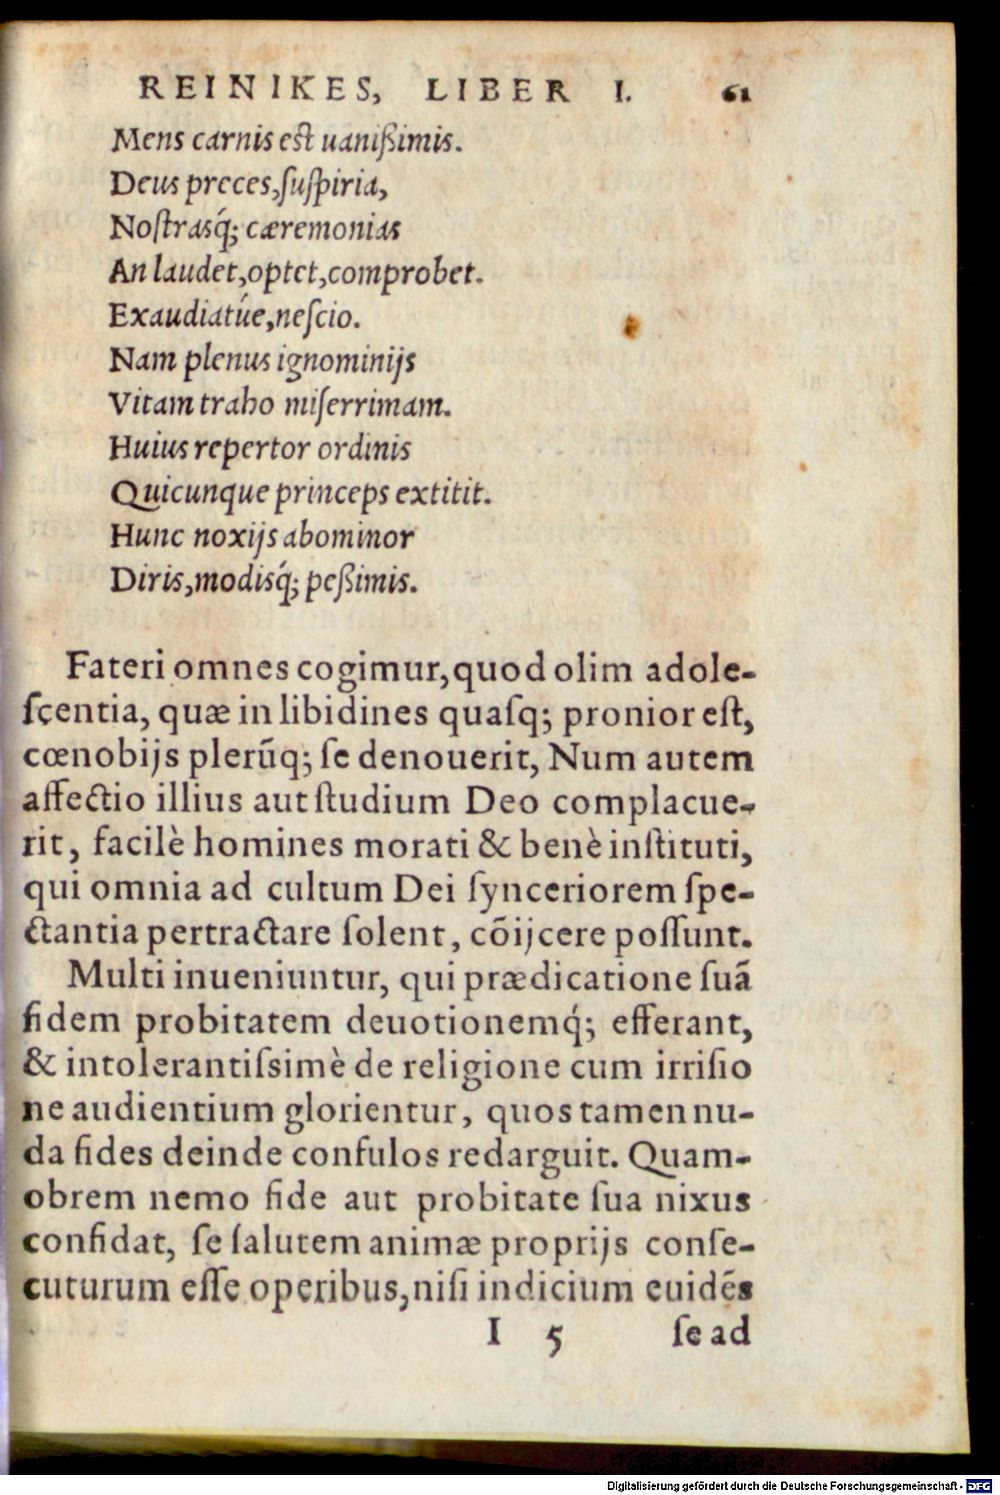 REINIKES, LIBER I. 61
Mens carnis est uanißimis.
Deus preces,ſuſpiria,
Noſtrasq́; cæremonias
An laudet,optet,comprobet.
Exaudiatúe,neſcio.
Nam plenus ignominijs
Vitam traho miſerrimam.
Huius repertor ordinis
Quicunque princeps extitit.
Hunc noxijs abominor
Diris,modisq́; peßimis.
Fateri omnes cogimur,quod olim adole-
ſcentia, quæ in libidines quaſq; pronior eſt,
cœnobijs plerũq; ſe denouerit, Num autem
affectio illius aut ſtudium Deo complacue-
rit, facilè homines morati & benè inſtituti,
qui omnia ad cultum Dei ſynceriorem ſpe-
ctantia pertractare ſolent, cõijcere poſſunt.
Multi inueniuntur, qui prædicatione ſuã
fidem probitatem deuotionemq́; efferant,
& intolerantiſsimè de religione cum irriſio
ne audientium glorientur, quos tamen nu-
da fides deinde confulos redarguit. Quam-
obrem nemo fide aut probitate ſua nixus
confidat, ſe ſalutem animæ proprijs conſe-
cuturum eſſe operibus,niſi indicium euidẽs
I 5 ſe ad
Digitalisierung gefördert durch die Deutsche Forschungsgemeinschaft - DFG